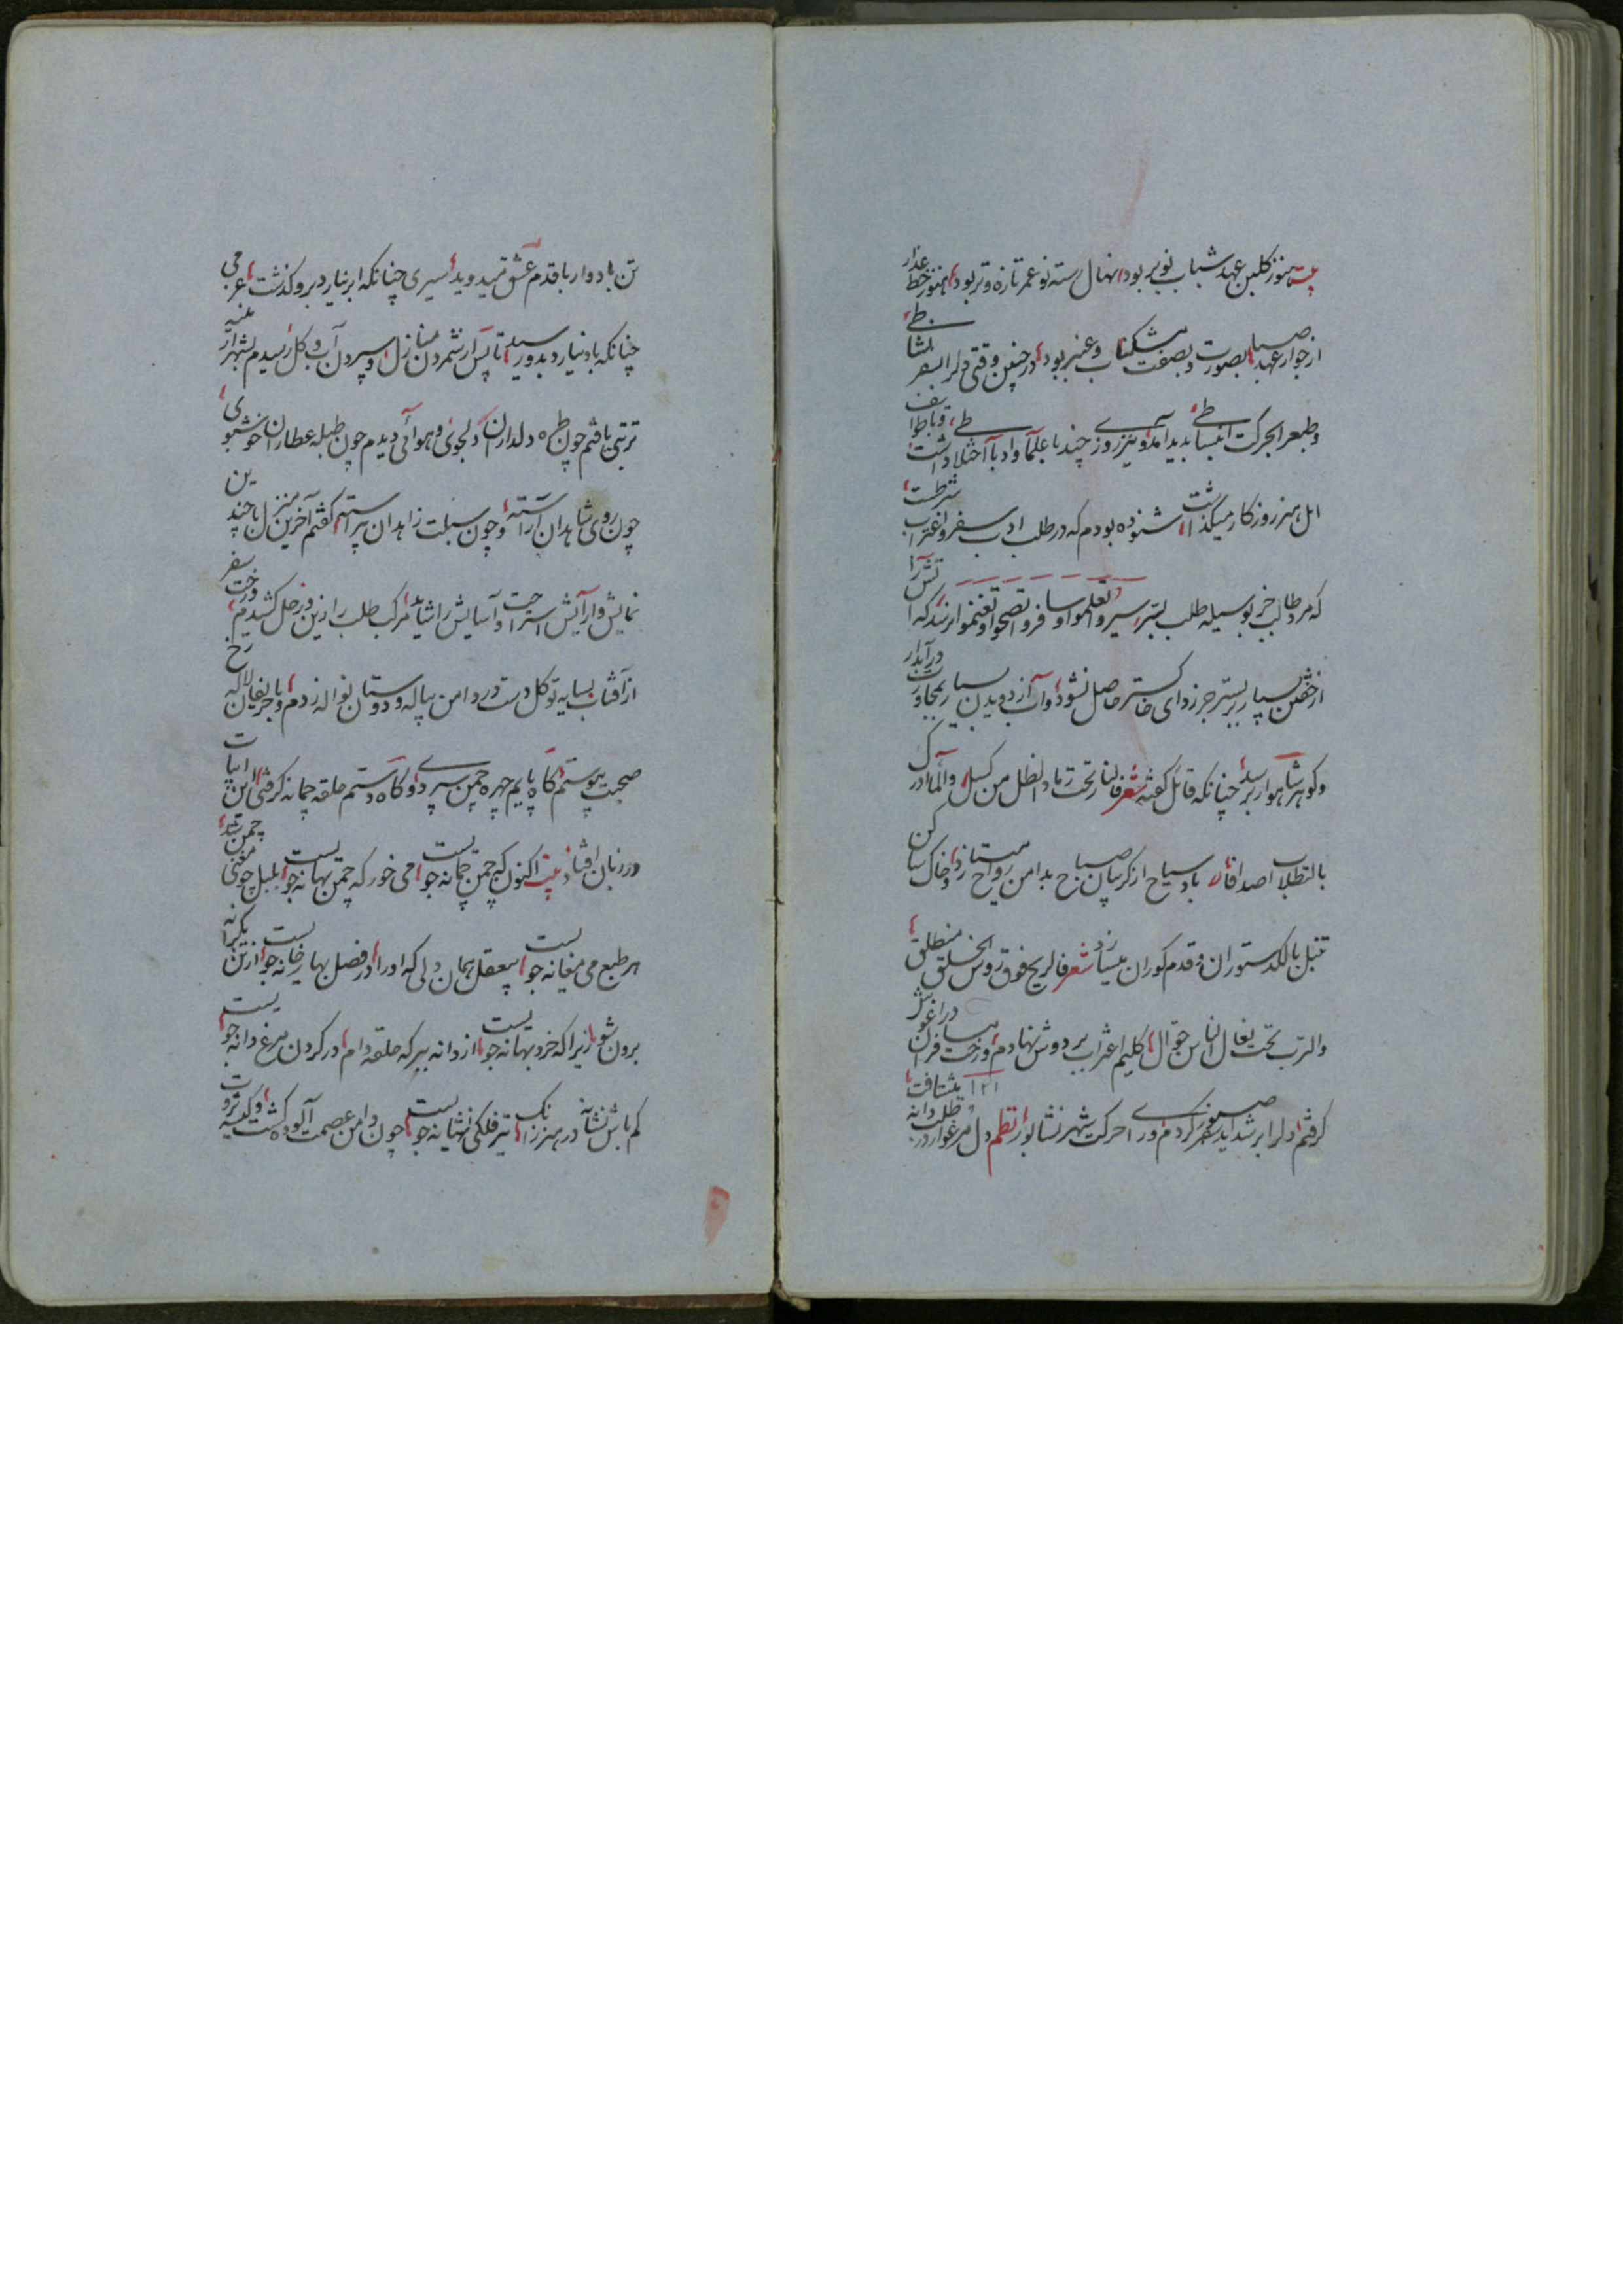 بیت هنوز گلبن عهد شباب نوبر بود نهال رسته نو عمر تازه و تر بود هنوز خط عذار
از جوار عهد صبا بصورت و بصفت مشکناب و عنبر بود در چنین وقتی دلرا بسفر نشاطی
و طبعرا بحرکت انبساطی پدید آمد و نیز روزی چند با علما و ادبا اختلاطی داشت و با طوایف
اهل هنر روزگار میگذاشت شنوده بودم که در طلب ادب سفر و اغتراب شرطست
که مرد طالب جز بوسیله طلب بستر سیروا تعلموا و سافروا تصحوا و تغنموا نرسد که آتش را
از خفتن بسیار بر بستر جز ردای خاکستر حاصل نشود و آب از دویدن بسیار بمجاورت در آبدار
و گوهر شاهوار رسد چنانکه قائل گفته شعر فالنار تحت رماد الظل من کسل والماء ادرک
بالتطلاب اصدافا باد سیاح از گریبان صباح بدامن رواح میتازد و خاک ساکن
تنبل با لگد ستوران و قدم کوران میسازد شعر فالریح فوق رؤس الخلق منطلق
والترب تحت نعال الناس جوال گلیم اغتراب بر دوش نهادم و رخت فراق در آغوش
گرفتم و دلرا بر شداید سفر صبور کردم و رای حرکت شهر نشابور نظم دل مرغوار در طلب دانه بشتافت
تن بادوار با قدم عشق میدوید سیری چنانکه ابر نیارد برو گذشت عزمی
چنانکه باد نیارد بدو رسید تا پس از شمردن منازل و سپردن آب و گل رسیدم بشهر آراسته
تربتی یافتم چون طره دلداران دلجوی و هوائی دیدم چون طبله عطاران خوشبوی
چون روی شاهدان آراسته و چون سبلت زاهدان پیراسته گفتم آخرین منزل با چندین
نمایش و آرایش استراحت و آسایش را شاید مرکب طلب را زین در حل کشیدم و رخت سفر
از آفتاب بسایه توکل دست در دامن پیاله و دوستان نواله زدم و با حریفان لاله رخ
صحبت پیوستم گاه پایم چهره چمن سپردی و گاه دستم حلقه چمانه گرفتی این ابیات
در زبان افتاد بیت اکنون که چمن چمانه جویست می خور که چمن بهانه جویست بلبل چو مغنی چمن شد
هر طبع می مغانه جویست بیعقل همان دلی که او را در فصل بهار خانه جویست از زین یکرانه
برون شو زیرا که خرد بهانه جویست از دانه ببر که حلقه دام در گردن مرغ دانه جویست
کم باش نشانه در هنر زانک تیر فلکی نشانه جویست چون دامن عصمت آلوده گشت و کیسه ثروت